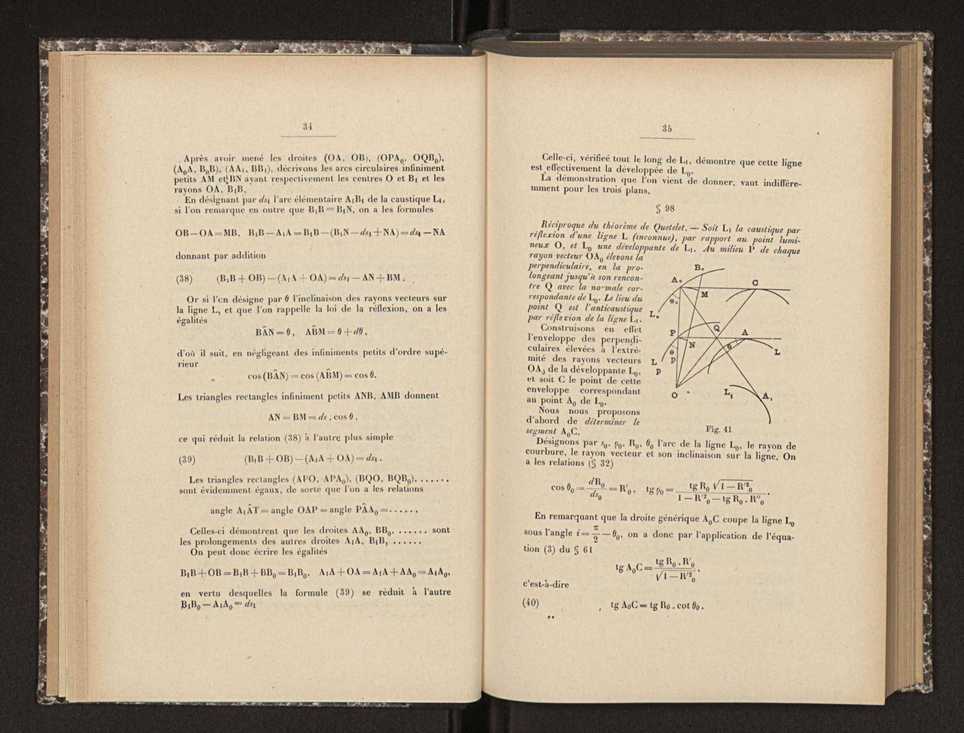 34
Après avoir mené les droites (OA, OB), (OPA₀, OQB₀),
(A₀A, B₀B), (AA₁, BB₁), décrivons les arcs circulaires infiniment
petits AM et BN ayant respectivement les centres O et B₁ et les
rayons OA, B₁B.
En désignant par ds₁ l'arc élémentaire A₁B₁ de la caustique L₁,
si l'on remarque en outre que B₁B = B₁N, on a les formules
OB — OA = MB, B₁B — A₁A = B₁B — (B₁N — ds₁ + NA) = ds₁ — NA
donnant par addition
(38) (B₁B + OB) — (A₁A + OA) = ds₁ — AN + BM .
Or si l'on désigne par θ l'inclinaison des rayons vecteurs sur
la ligne L, et que l'on rappelle la loi de la réflexion, on a les
égalités
BÂN = θ , AB̂M = θ + dθ ,
d'où il suit, en négligeant des infiniments petits d'ordre supé-
rieur
cos (BÂN) = cos (AB̂M) = cos θ.
Les triangles rectangles infiniment petits ANB, AMB donnent
AN = BM = ds . cos θ ,
ce qui réduit la relation (38) à l'autre plus simple
(39) (B₁B + OB) — (A₁A + OA) = ds₁ .
Les triangles rectangles (APO, APA₀), (BQO, BQB₀), . . . . . .
sont évidemment égaux, de sorte que l'on a les relations
angle A₁ÂT = angle OAP = angle PÂA₀ = . . . . . ,
Celles-ci démontrent que les droites AA₀, BB₀, . . . . . . sont
les prolongements des autres droites A₁A, B₁B, . . . . . .
On peut donc écrire les égalités
B₁B + OB = B₁B + BB₀ = B₁B₀, A₁A + OA = A₁A + AA₀ = A₁A₀,
en vertu desquelles la formule (39) se réduit à l'autre
B₁B₀ — A₁A₀ = ds₁
35
Celle-ci, vérifiée tout le long de L₁, démontre que cette ligne
est effectivement la développée de L₀.
La démonstration que l'on vient de donner, vaut indiffére-
mment pour les trois plans.
§ 98
Réciproque du théorème de Quetelet. — Soit L₁ la caustique par
réflexion d'une ligne L (inconnue), par rapport au point lumi-
neux O, et L₀ une développante de L₁. Au milieu P de chaque
rayon vecteur OA₀ élevons la
perpendiculaire, en la pro-
longeant jusqu'à son rencon-
tre Q avec la normale cor-
respondante de L₀. Le lieu du
point Q est l'anticaustique
par réflexion de la ligne L₁.
Construisons en effet
l'enveloppe des perpendi-
culaires élevées à l'extré-
mité des rayons vecteurs
OA₀ de la développante L₀,
et soit C le point de cette
enveloppe correspondant
au point A₀ de L₀.
Nous nous proposons
d'abord de déterminer le
segment A₀C.
B₀
A₀
C
M
θ₀
L₀
P
Q
A
N
θ
P
B
L
L
P
O
L₁
A₁
Fig. 41
Désignons par s₀, ρ₀, R₀, θ₀ l'arc de la ligne L₀, le rayon de
courbure, le rayon vecteur et son inclinaison sur la ligne. On
a les relations (§ 32)
cos θ₀ = dR₀/ds₀ = R'₀, tg ρ₀ = tg R₀ √(1 — R'²₀) / (1 — R'²₀ — tg R₀ . R''₀) .
En remarquant que la droite générique A₀C coupe la ligne L₀
sous l'angle i = π/2 — θ₀, on a donc par l'application de l'équa-
tion (3) du § 61
tg A₀C = tg R₀ . R'₀ / √(1 — R'²₀) ,
c'est-à-dire
(40) tg A₀C = tg R₀ . cot θ₀ .